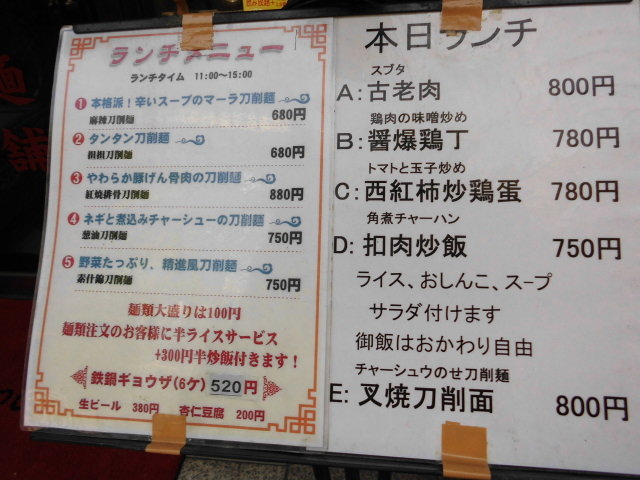 ランチメニュー
ランチタイム 11:00～15:00
① 本格派！辛いスープのマーラ刀削麺
麻辣刀削麺
680円
② タンタン刀削麺
担担刀削麺
680円
③ やわらか豚げん骨肉の刀削麺
紅焼排骨刀削麺
880円
④ ネギと煮込みチャーシューの刀削麺
葱油刀削麺
750円
⑤ 野菜たっぷり、精進風刀削麺
素什錦刀削麺
750円
麺類大盛りは100円
麺類注文のお客様に半ライスサービス
+300円半炒飯付きます！
鉄鍋ギョウザ(6ケ) 520円
生ビール 380円 杏仁豆腐 200円
本日ランチ
スブタ
A：古老肉 800円
鶏肉の味噌炒め
B：醤爆鶏丁 780円
トマトと玉子炒め
C：西紅柿炒鶏蛋 780円
角煮チャーハン
D：扣肉炒飯 750円
ライス、おしんこ、スープ
サラダ付けます
御飯はおかわり自由
チャーシュウのせ刀削麺
E：叉焼刀削面 800円